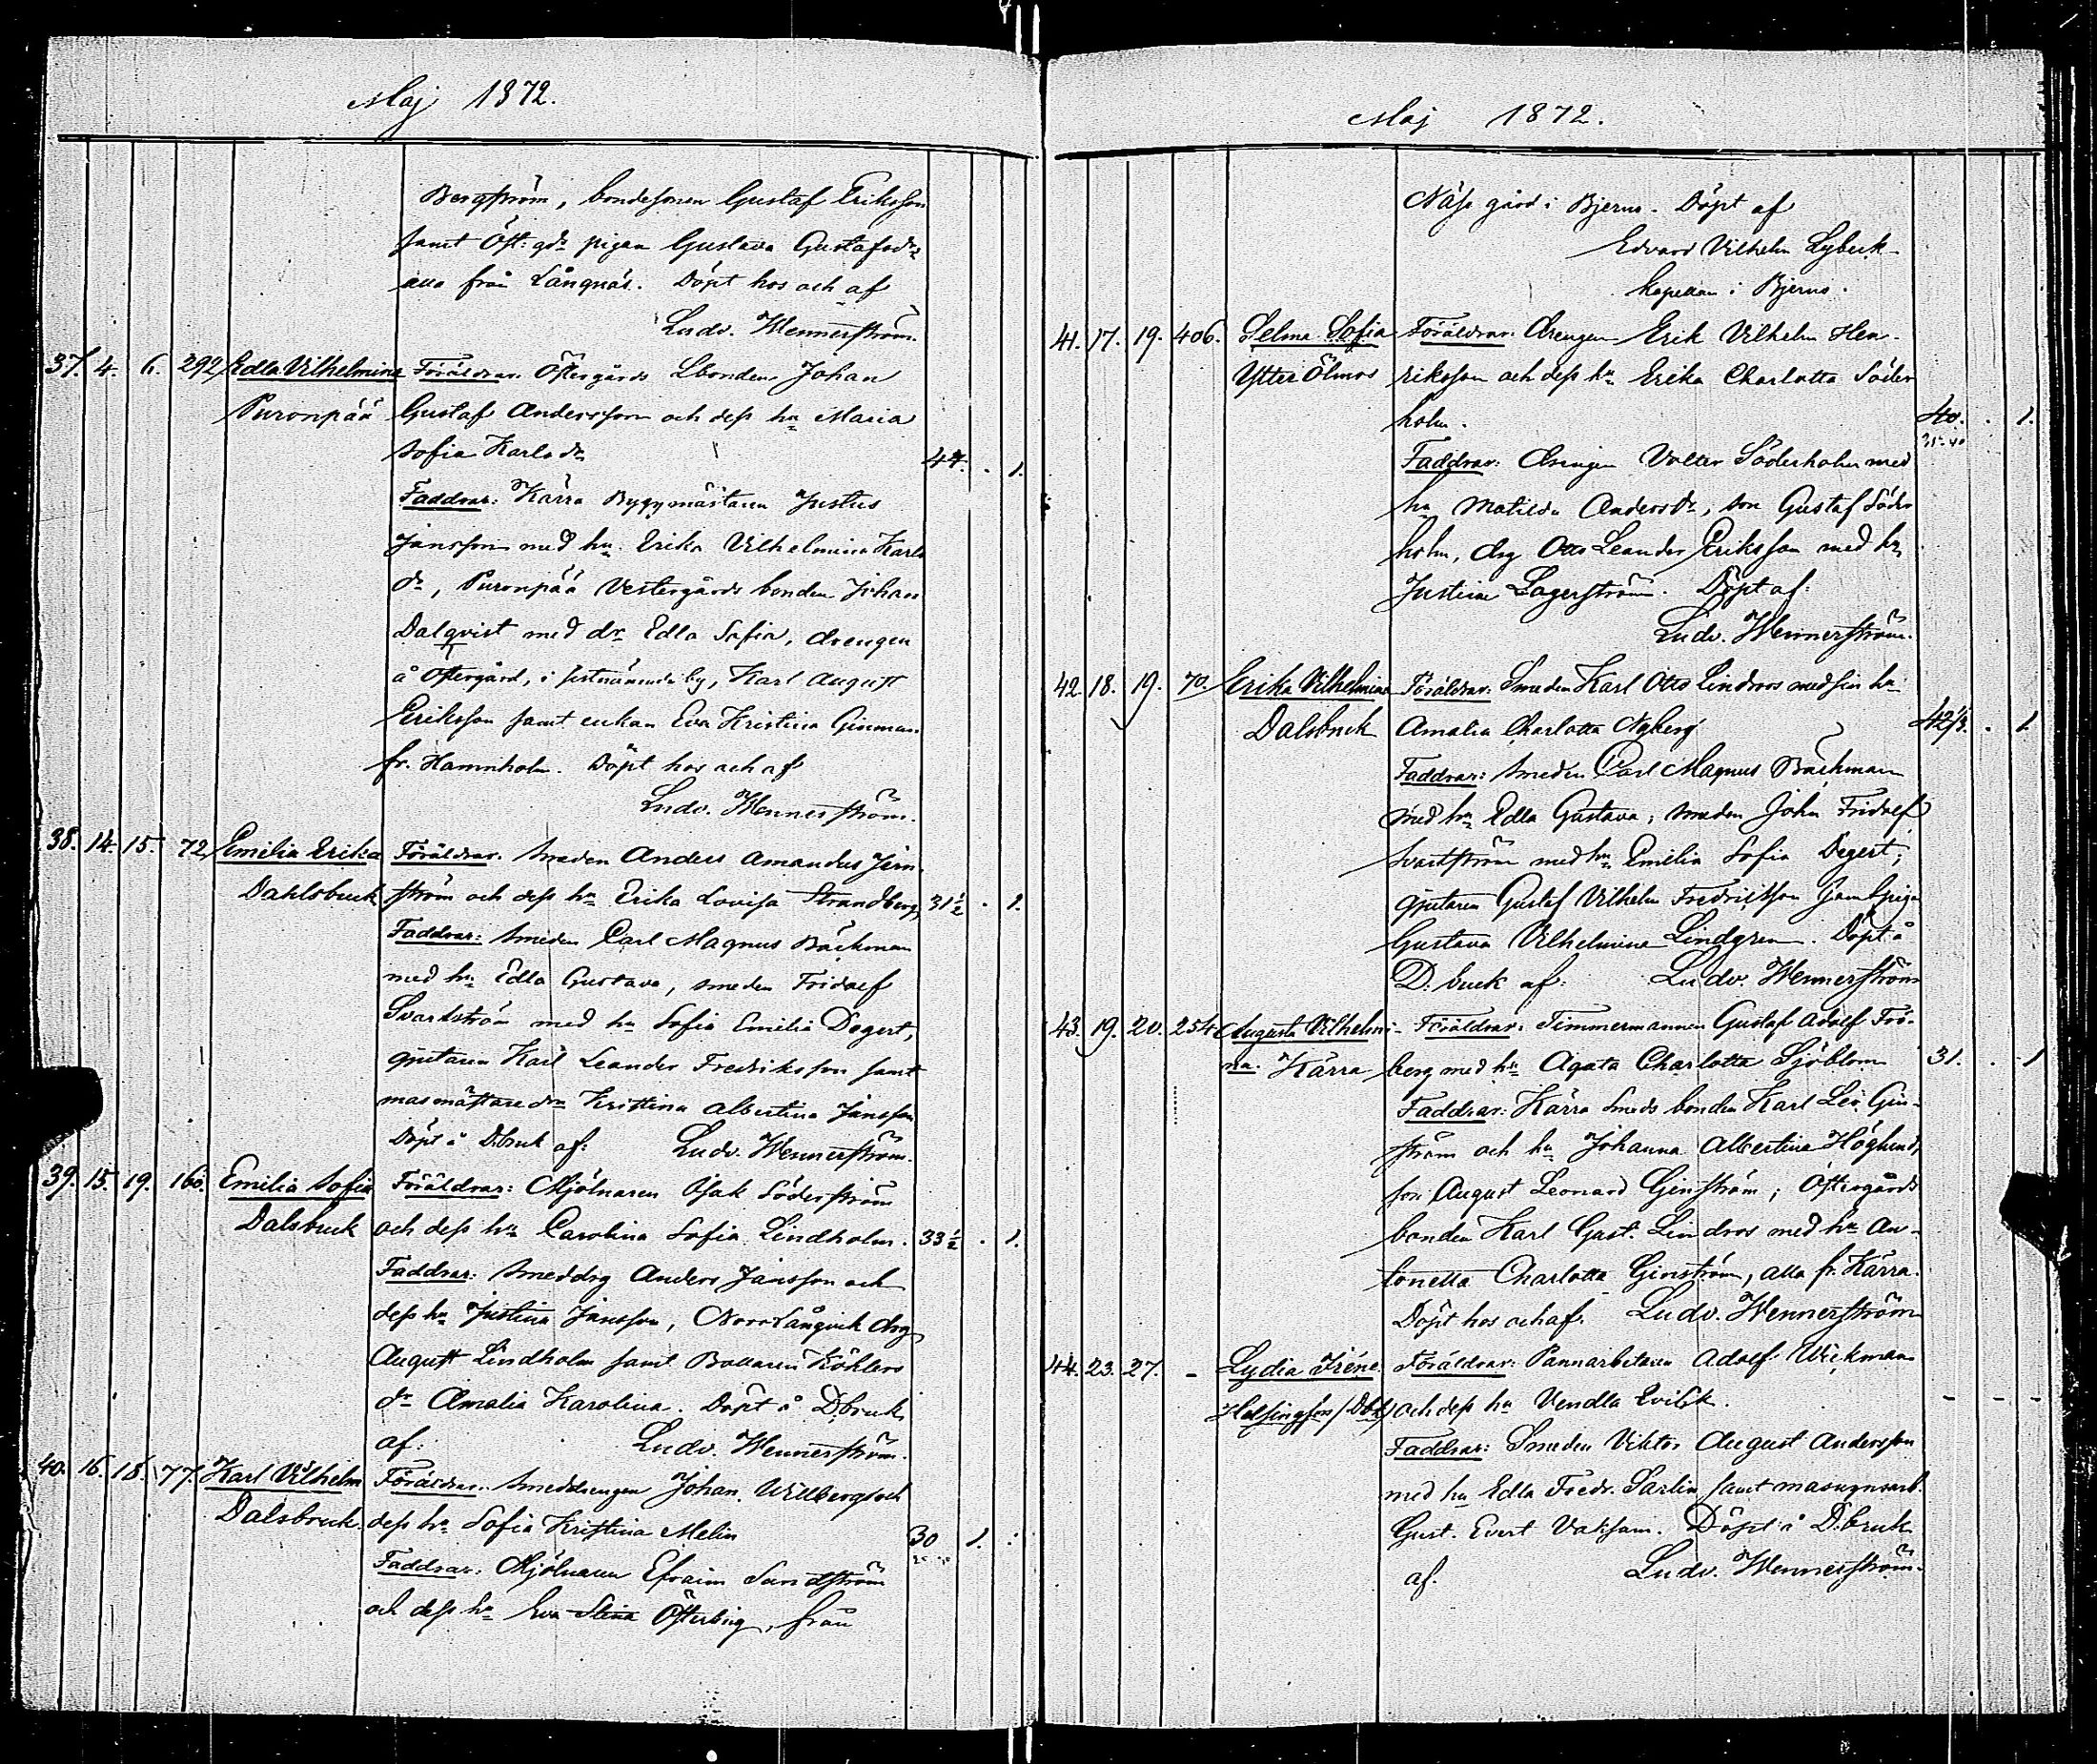 Maj 1872.
Bergström, bondesonen Gustaf Eriksson
samt Öst: gds pigan Gustava Gustafsdr
alla från Långnäs. Döpt hos och af
Ludv. Wennerström.
37. 4. 6. 292 Edla Vilhelmina Föräldrar. Östergårds Lbonden Johan
Puronpää Gustaf Andersson och dess hu Maria
Sofia Karlsdr 44. . 1.
Faddrar: Kärra Byggmästaren Justus
Jansson med hu. Erika Vilhelmina Karls
dr, Puronpää Vestergårds bonden Johan
Dalqvist med dr Edla Sofia, drengen
å Östergård, i sistnämnda by, Karl August
Eriksson samt enkan Eva Kristina Ginman
fr. Hamnholm. Döpt hos och af
Ludv. Wennerström.
38. 14. 15. 72 Emilia Erika Föräldrar. Smeden Anders Amandus Jern-
Dahlsbruk ström och dess hu Erika Lovisa Strandberg 31½ . 1.
Faddrar: Smeden Carl Magnus Bäckman
med hu Edla Gustava, smeden Fridolf
Svartström med hu Sofia Emilia Degert,
gjutaren Karl Leander Fredriksson samt
masmästare dra Kristina Albertina Jansson
Döpt å D.bruk af: Ludv. Wennerström.
39. 15. 19. 160. Emilia Sofia Föräldrar: Mjölnaren Isak Söderström
Dalsbruk och dess hu Carolina Sofia Lindholm. 33½ . 1.
Faddrar: Smeddrg Anders Jansson och
dess hu Justina Jansson, Norrlångvik drg
August Lindholm samt Köhlers
dr Amalia Karolina. Döpt å D.bruk
af: Ludv. Wennerström.
40. 16. 18. 77. Karl Vilhelm Föräldrar. Smeddrengen Johan Willberg och
Dalsbruk. dess hu Sofia Kristina Melin 30 1. .
Faddrar. Mjölnaren Efraim Sandström
och dess hu Eva Stina Österberg, från
Maj 1872.
Näse gård i Bjerno. Döpt af
Edvard Vilhelm Lybeck
Kapellan i Bjerno.
41. 17. 19. 406. Selma Sofia Föräldrar. Drengen Erik Vilhelm Hen-
Ytter Ölmos riksson och dess hu Erika Charlotta Söder
holm. 40. . 1.
Faddrar: Drengen Volter Söderholm med
hu Matilda Andersdr, son Gustaf Söder
holm, drg Otto Leander Eriksson med hu
Justina Lagerström. Döpt af:
Ludv. Wennerström.
42. 18. 19. 70. Erika Vilhelmina Föräldrar: Smeden Karl Otto Lindroos med sin hu
Dalsbruk Amalia Charlotta Nyberg 42⅓. . 1.
Faddrar: Smeden Carl Magnus Bäckman
med hu Edla Gustava, smeden John Fridolf
Svartström med hu Emilia Sofia Degert;
gjutaren Gustaf Vilhelm Fredriksson samt pigan
Gustava Vilhelmina Lindgren. Döpt å
D. bruk af: Ludv. Wennerström
43. 19. 20. 254 Augusta Vilhelmi- Föräldrar: Timmermannen Gustaf Adolf Frö-
na. Kärra berg med hu Agata Charlotta Sjöblom 31. . 1
Faddrar: Kärra Smeds bonden Karl Leo. Gin-
ström och hu Johanna Albertina Höglund,
son August Leonard Ginström; Östergårds
bonden Karl Gust. Lindros med hu An-
tonetta Charlotta Ginström, alla fr. Kärra.
Döpt hos och af. Ludv. Wennerström
44. 23. 27. - Lydia Iréne. Föräldrar: Pannarbetaren Adolf Wickman
Helsingfors/Dbk/ och dess hu Vendla - - -
Faddrar: Smeden Viktor August Andersson
med hu Edla Fredr. Sarlin samt masugnsarb.
Gust. Evert Döpt å D.bruk
af. Ludv. Wennerström.